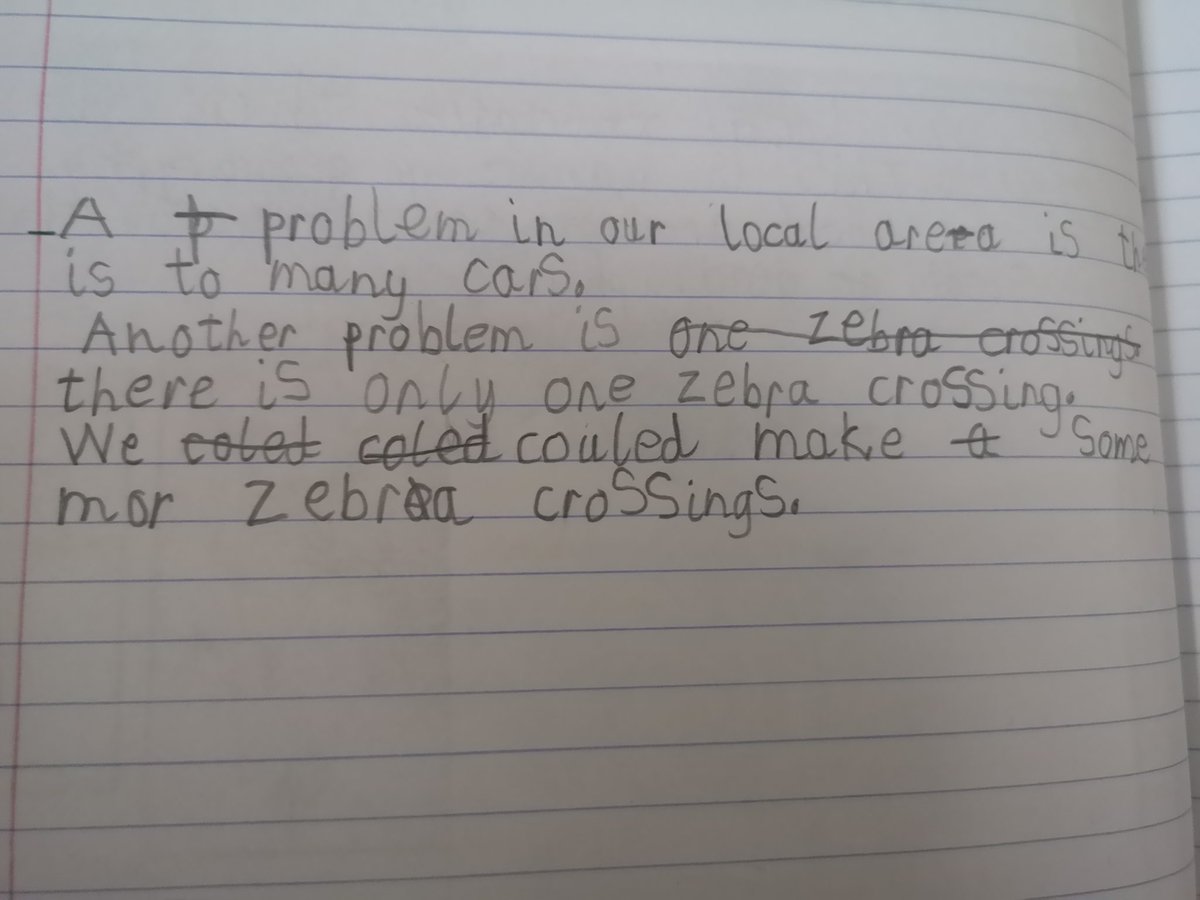 A problem in our local area is
is to many cars.
Another problem is one zebra crossings
there is only one zebra crossing.
We coled coled couled make a some
mor zebra crossings.